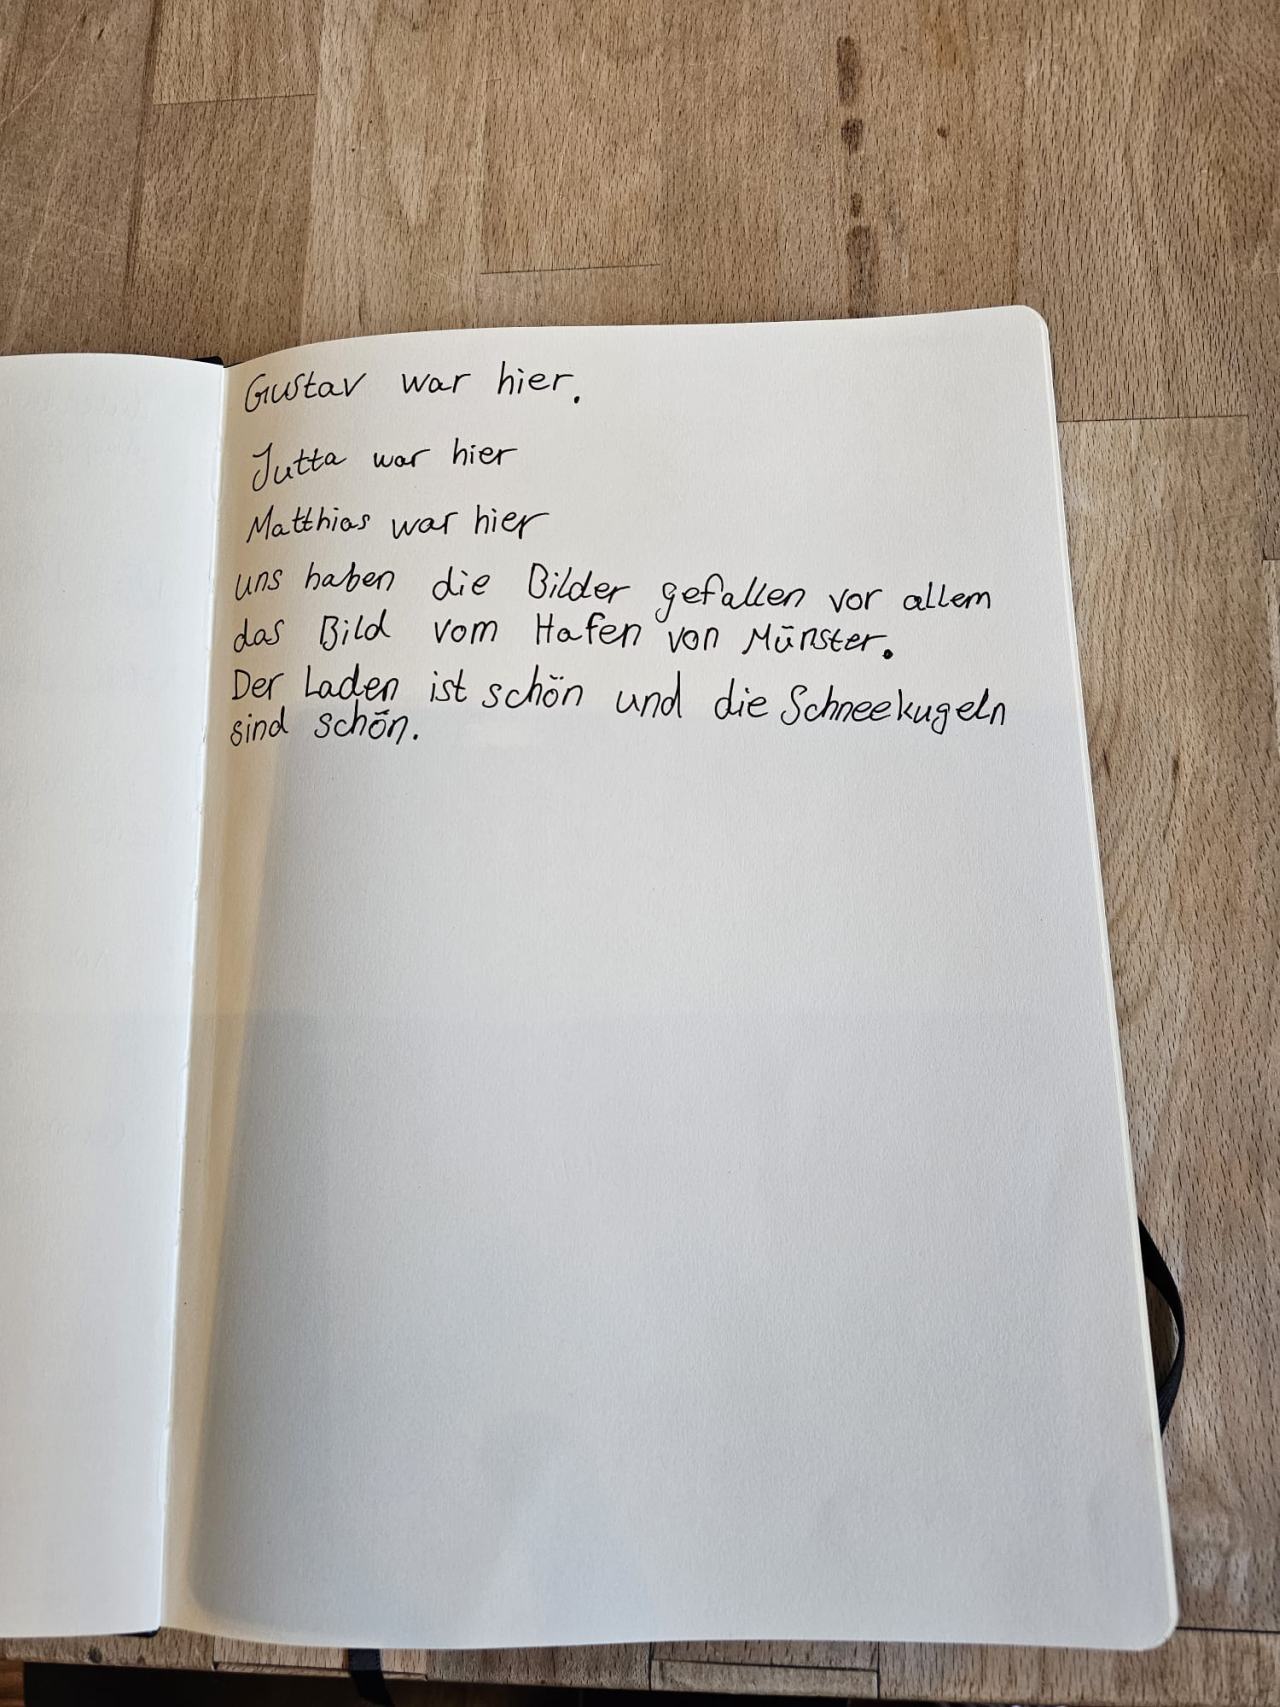 Gustav war hier.
Jutta war hier
Matthias war hier
uns haben die Bilder gefallen vor allem
das Bild vom Hafen von Münster.
Der Laden ist schön und die Schneekugeln
sind schön.